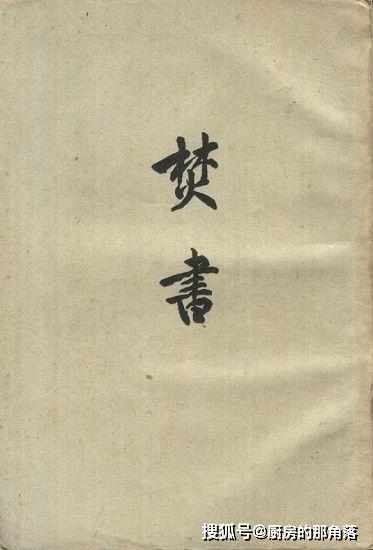 焚
書
搜狐号@厨房的那角落